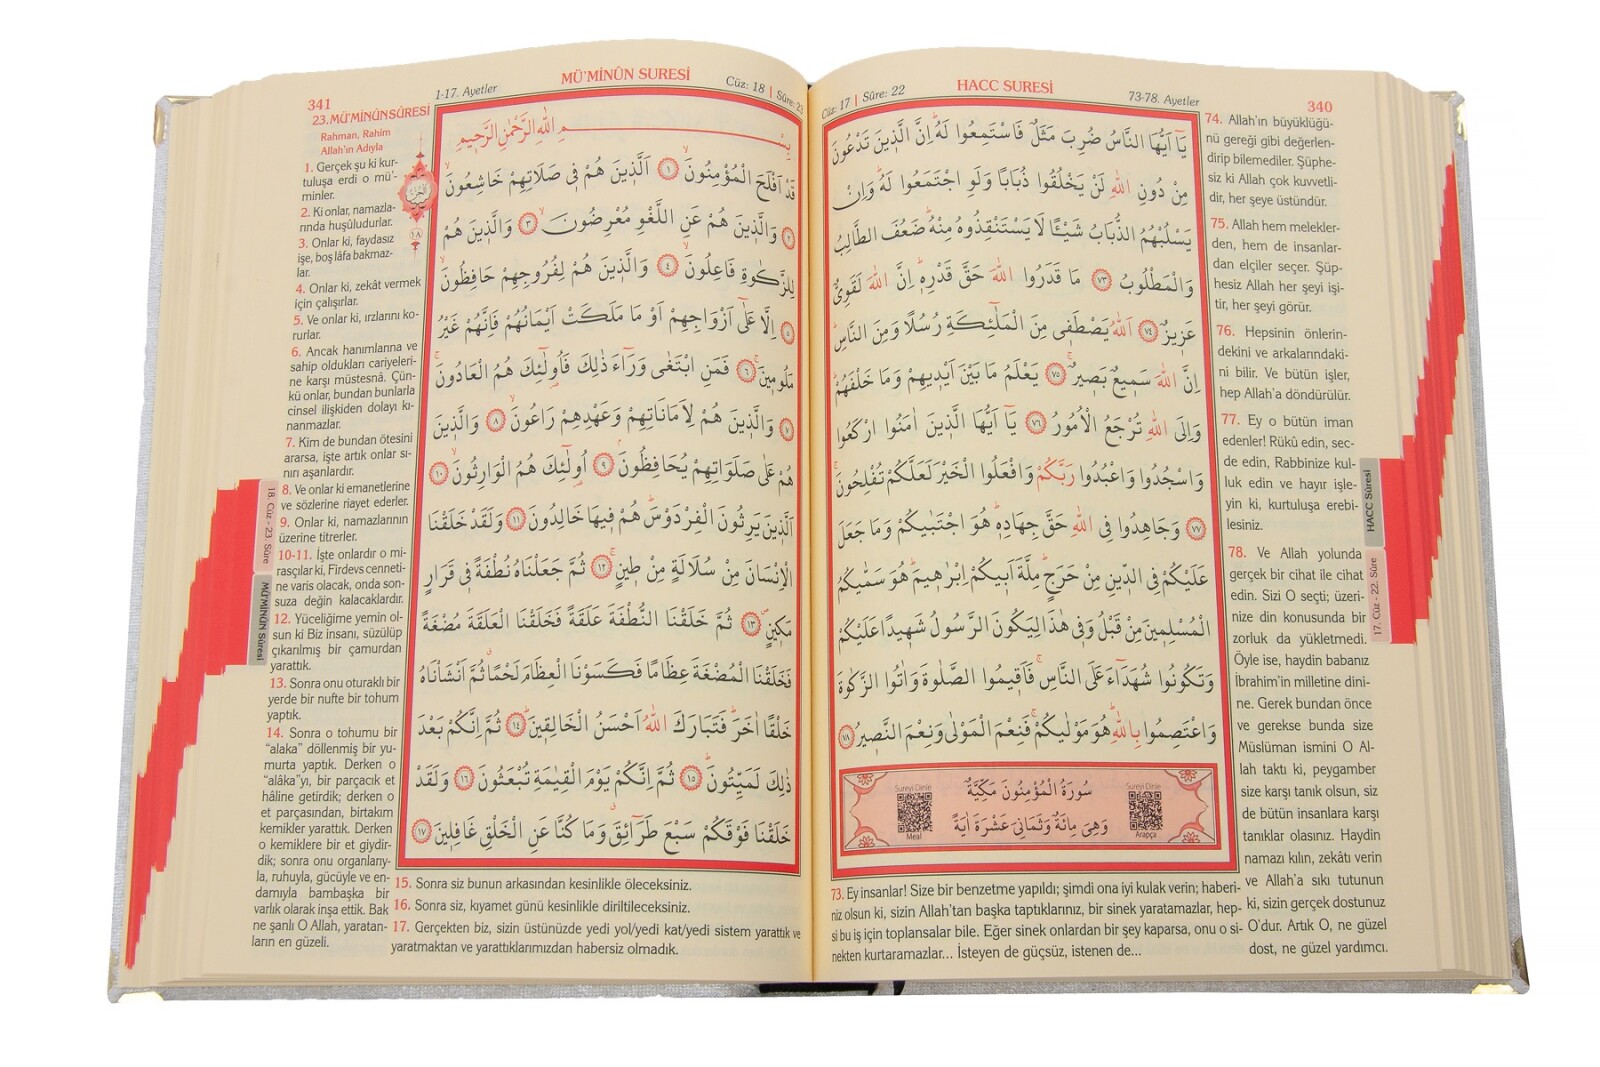 Cüz: 17 | Sûre: 22
HACC SURESİ
73-78. Ayetler
340
يَٓا اَيُّهَا النَّاسُ ضُرِبَ مَثَلٌ فَاسْتَمِعُوا لَهُۜ اِنَّ الَّذ۪ينَ تَدْعُونَ
مِنْ دُونِ اللّٰهِ لَنْ يَخْلُقُوا ذُبَابًا وَلَوِ اجْتَمَعُوا لَهُۜ وَاِنْ
يَسْلُبْهُمُ الذُّبَابُ شَيْـًٔا لَا يَسْتَنْقِذُوهُ مِنْهُۜ ضَعُفَ الطَّالِبُ
وَالْمَطْلُوبُ ﴿٧٣﴾ مَا قَدَرُوا اللّٰهَ حَقَّ قَدْرِه۪ۜ اِنَّ اللّٰهَ لَقَوِيٌّ
عَز۪يزٌ ﴿٧٤﴾ اَللّٰهُ يَصْطَف۪ي مِنَ الْمَلٰٓئِكَةِ رُسُلًا وَمِنَ النَّاسِۜ
اِنَّ اللّٰهَ سَم۪يعٌ بَص۪يرٌۚ ﴿٧٥﴾ يَعْلَمُ مَا بَيْنَ اَيْد۪يهِمْ وَمَا خَلْفَهُمْۜ
وَاِلَى اللّٰهِ تُرْجَعُ الْاُمُورُ ﴿٧٦﴾ يَٓا اَيُّهَا الَّذ۪ينَ اٰمَنُوا ارْكَعُوا
وَاسْجُدُوا وَاعْبُدُوا رَبَّكُمْ وَافْعَلُوا الْخَيْرَ لَعَلَّكُمْ تُفْلِحُونَۚ
﴿٧٧﴾ وَجَاهِدُوا فِي اللّٰهِ حَقَّ جِهَادِه۪ۜ هُوَ اجْتَبٰيكُمْ وَمَا جَعَلَ
عَلَيْكُمْ فِي الدّ۪ينِ مِنْ حَرَجٍۜ مِلَّةَ اَب۪يكُمْ اِبْرٰه۪يمَۜ هُوَ سَمّٰيكُمُ
الْمُسْلِم۪ينَ مِنْ قَبْلُ وَف۪ي هٰذَا لِيَكُونَ الرَّسُولُ شَه۪يدًا عَلَيْكُمْ
وَتَكُونُوا شُهَدَٓاءَ عَلَى النَّاسِۚ فَاَق۪يمُوا الصَّلٰوةَ وَاٰتُوا الزَّكٰوةَ
وَاعْتَصِمُوا بِاللّٰهِۜ هُوَ مَوْلٰيكُمْۚ فَنِعْمَ الْمَوْلٰى وَنِعْمَ النَّص۪يرُ ﴿٧٨﴾
Sureyi Dinle
Arapça
سُورَةُ الْمُؤْمِنُونَ مَكِّيَّةٌ
وَهِيَ مِائَةٌ وَثَمَانِيَ عَشْرَةَ اٰيَةً
Sureyi Dinle
Meal
73. Ey insanlar! Size bir benzetme yapıldı; şimdi ona iyi kulak verin; haberi-
niz olsun ki, sizin Allah'tan başka taptıklarınız, bir sinek yaratamazlar, hep-
si bu iş için toplansalar bile. Eğer sinek onlardan bir şey kaparsa, onu o si-
nekten kurtaramazlar... İsteyen de güçsüz, istenen de...
74. Allah'ın büyüklüğü-
nü gereği gibi değerlen-
dirip bilemediler. Şüphe-
siz ki Allah çok kuvvetli-
dir, her şeye üstündür.
75. Allah hem melekler-
den, hem de insanlar-
dan elçiler seçer. Şüp-
hesiz Allah her şeyi işi-
tir, her şeyi görür.
76. Hepsinin önlerin-
dekini ve arkalarındaki-
ni bilir. Ve bütün işler,
hep Allah'a döndürülür.
77. Ey o bütün iman
edenler! Rükû edin, sec-
de edin, Rabbinize kul-
luk edin ve hayır işle-
yin ki, kurtuluşa erebi-
lesiniz.
78. Ve Allah yolunda
gerçek bir cihat ile cihat
edin. Sizi O seçti; üzeri-
nize din konusunda bir
zorluk da yükletmedi.
Öyle ise, haydin babanız
İbrahim'in milletine dini-
ne. Gerek bundan önce
ve gerekse bunda size
Müslüman ismini O Al-
lah taktı ki, peygamber
size karşı tanık olsun, siz
de bütün insanlara karşı
tanıklar olasınız. Haydin
namazı kılın, zekâtı verin
ve Allah'a sıkı tutunun
ki, sizin gerçek dostunuz
O'dur. Artık O, ne güzel
dost, ne güzel yardımcı.
HACC Sûresi
17. Cüz - 22. Sûre
341
1-17. Ayetler
MÜ'MİNÛN SURESİ
Cüz: 18 | Sûre: 23
بِسْمِ اللّٰهِ الرَّحْمٰنِ الرَّح۪يمِ
قَدْ اَفْلَحَ الْمُؤْمِنُونَۙ ﴿١﴾ اَلَّذ۪ينَ هُمْ ف۪ي صَلَاتِهِمْ خَاشِعُونَۙ
﴿٢﴾ وَالَّذ۪ينَ هُمْ عَنِ اللَّغْوِ مُعْرِضُونَۙ ﴿٣﴾ وَالَّذ۪ينَ هُمْ
لِلزَّكٰوةِ فَاعِلُونَۙ ﴿٤﴾ وَالَّذ۪ينَ هُمْ لِفُرُوجِهِمْ حَافِظُونَۙ
﴿٥﴾ اِلَّا عَلٰٓى اَزْوَاجِهِمْ اَوْ مَا مَلَكَتْ اَيْمَانُهُمْ فَاِنَّهُمْ غَيْرُ
مَلُوم۪ينَۚ ﴿٦﴾ فَمَنِ ابْتَغٰى وَرَٓاءَ ذٰلِكَ فَاُو۬لٰٓئِكَ هُمُ الْعَادُونَۚ
﴿٧﴾ وَالَّذ۪ينَ هُمْ لِاَمَانَاتِهِمْ وَعَهْدِهِمْ رَاعُونَۙ ﴿٨﴾ وَالَّذ۪ينَ
هُمْ عَلٰى صَلَوَاتِهِمْ يُحَافِظُونَۘ ﴿٩﴾ اُو۬لٰٓئِكَ هُمُ الْوَارِثُونَۙ ﴿١٠﴾
اَلَّذ۪ينَ يَرِثُونَ الْفِرْدَوْسَۜ هُمْ ف۪يهَا خَالِدُونَ ﴿١١﴾ وَلَقَدْ خَلَقْنَا
الْاِنْسَانَ مِنْ سُلَالَةٍ مِنْ ط۪ينٍۚ ﴿١٢﴾ ثُمَّ جَعَلْنَاهُ نُطْفَةً ف۪ي قَرَارٍ
مَك۪ينٍۖ ﴿١٣﴾ ثُمَّ خَلَقْنَا النُّطْفَةَ عَلَقَةً فَخَلَقْنَا الْعَلَقَةَ مُضْغَةً
فَخَلَقْنَا الْمُضْغَةَ عِظَامًا فَكَسَوْنَا الْعِظَامَ لَحْمًاۗ ثُمَّ اَنْشَأْنَاهُ
خَلْقًا اٰخَرَۜ فَتَبَارَكَ اللّٰهُ اَحْسَنُ الْخَالِق۪ينَۜ ﴿١٤﴾ ثُمَّ اِنَّكُمْ بَعْدَ
ذٰلِكَ لَمَيِّتُونَۜ ﴿١٥﴾ ثُمَّ اِنَّكُمْ يَوْمَ الْقِيٰمَةِ تُبْعَثُونَ ﴿١٦﴾ وَلَقَدْ
خَلَقْنَا فَوْقَكُمْ سَبْعَ طَرَٓائِقَۗ وَمَا كُنَّا عَنِ الْخَلْقِ غَافِل۪ينَ ﴿١٧﴾
١٨
23.MÜ'MİNÛN SÛRESİ
Rahman, Rahim
Allah'ın Adıyla
1. Gerçek şu ki kur-
tuluşa erdi o mü'-
minler.
2. Ki onlar, namazla-
rında huşûludurlar.
3. Onlar ki, faydasız
işe, boş lâfa bakmaz-
lar.
4. Onlar ki, zekât vermek
için çalışırlar.
5. Ve onlar ki, ırzlarını ko-
rurlar.
6. Ancak hanımlarına ve
sahip oldukları cariyeleri-
ne karşı müstesnâ. Çün-
kü onlar, bundan bunlarla
cinsel ilişkiden dolayı kı-
nanmazlar.
7. Kim de bundan ötesini
ararsa, işte artık onlar sı-
nırı aşanlardır.
8. Ve onlar ki emanetlerine
ve sözlerine riayet ederler.
9. Onlar ki, namazlarının
üzerine titrerler.
10-11. İşte onlardır o mi-
rasçılar ki, Firdevs cenneti-
ne varis olacak, onda son-
suza değin kalacaklardır.
12. Yüceliğime yemin ol-
sun ki Biz insanı, süzülüp
çıkarılmış bir çamurdan
yarattık.
13. Sonra onu oturaklı bir
yerde bir nufte bir tohum
yaptık.
14. Sonra o tohumu bir
"alaka" döllenmiş bir yu-
murta yaptık. Derken o
"alâka"yı, bir parçacık et
hâline getirdik; derken o
et parçasından, birtakım
kemikler yarattık. Derken
o kemiklere bir et giydir-
dik; sonra onu organlarıy-
la, ruhuyla, gücüyle ve en-
damıyla bambaşka bir
varlık olarak inşa ettik. Bak
ne şanlı O Allah, yaratan-
ların en güzeli.
15. Sonra siz bunun arkasından kesinlikle öleceksiniz.
16. Sonra siz, kıyamet günü kesinlikle diriltileceksiniz.
17. Gerçekten biz, sizin üstünüzde yedi yol/yedi kat/yedi sistem yarattık ve
yaratmaktan ve yarattıklarımızdan habersiz olmadık.
18. Cüz - 23. Sûre
MÜ'MİNÛN Sûresi